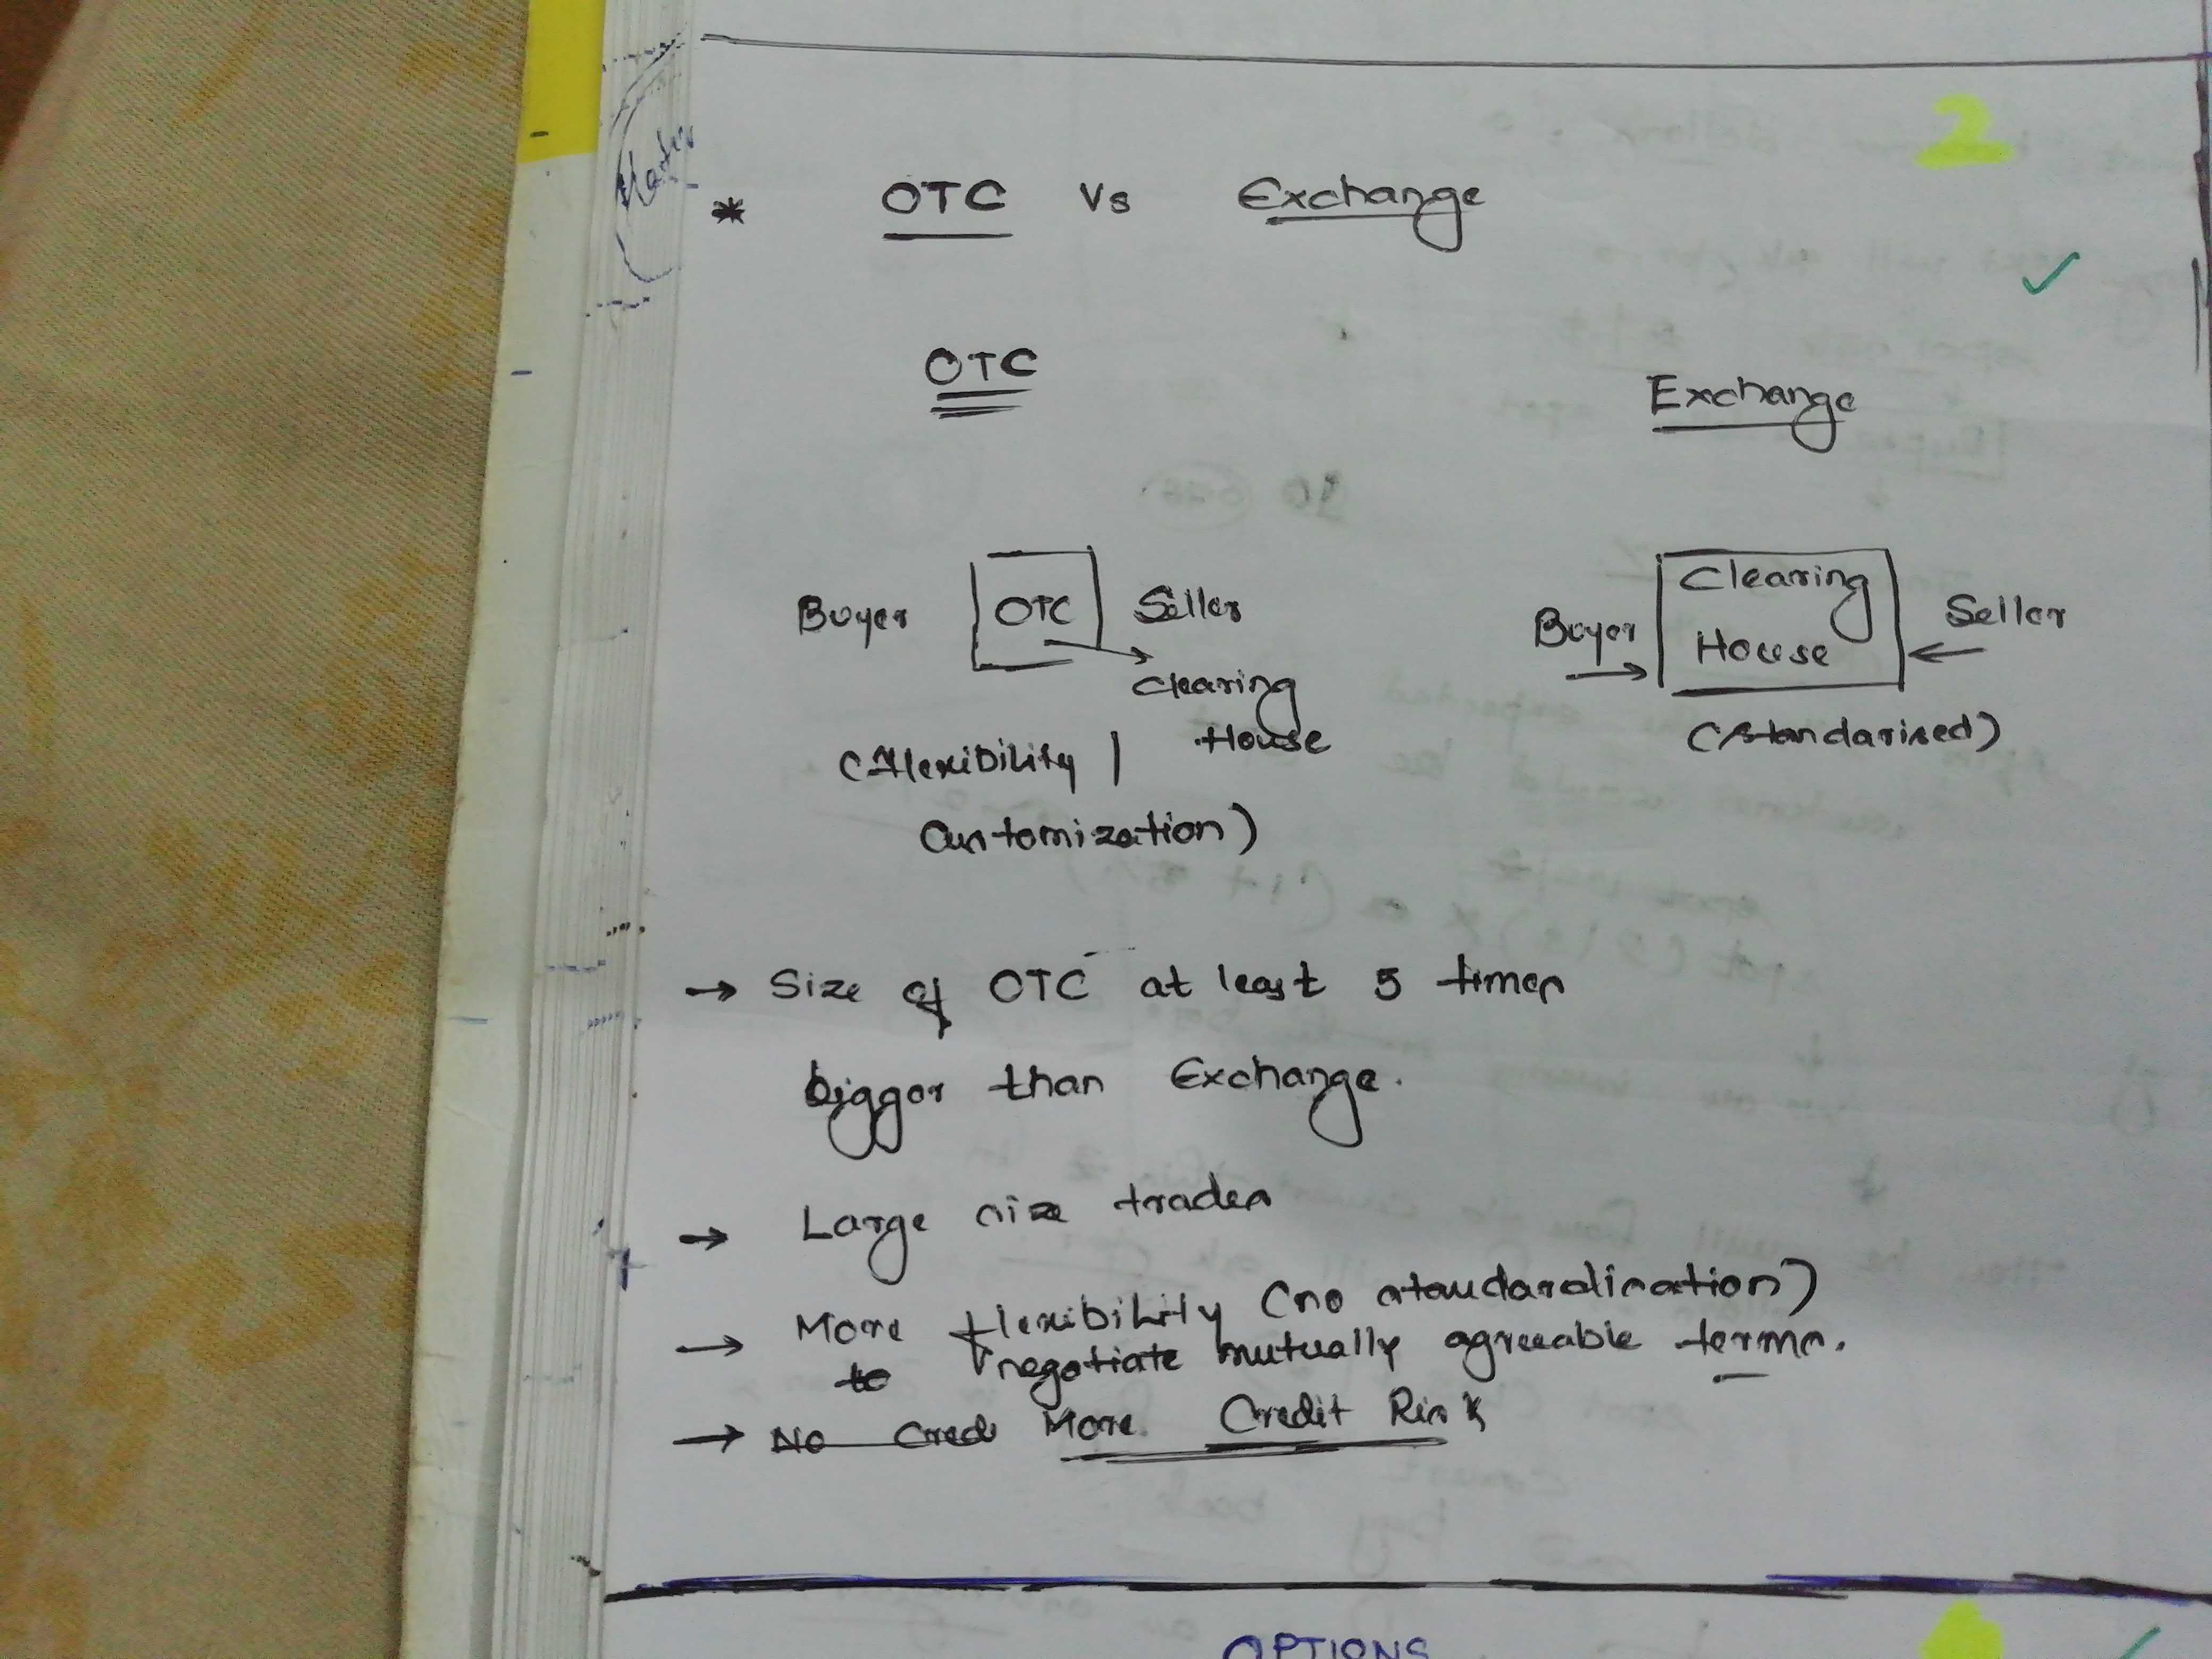 2
* OTC Vs Exchange
OTC
Exchange
Buyer OTC Seller
Clearing
House
(Flexibility /
Customization)
Buyer Clearing House Seller
(Standarised)
→ Size of OTC at least 5 times
bigger than Exchange.
→ Large size trades
→ More flexibility (no standardisation)
to negotiate mutually agreeable terms.
→ No Cred More Credit Risk
OPTIONS